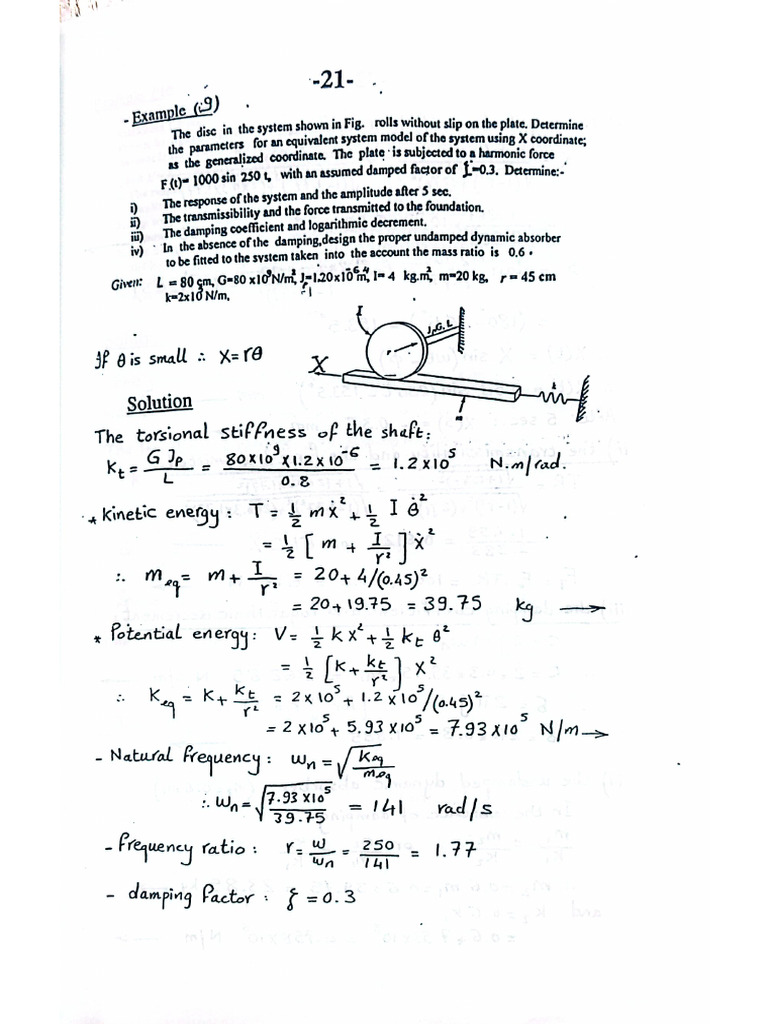 -21-
- Example (9)
The disc in the system shown in Fig. rolls without slip on the plate. Determine
the parameters for an equivalent system model of the system using X coordinate;
as the generalized coordinate. The plate is subjected to a harmonic force
F(t)= 1000 sin 250 t, with an assumed damped factor of ξ=0.3. Determine:-
i) The response of the system and the amplitude after 5 sec.
ii) The transmissibility and the force transmitted to the foundation.
iii) The damping coefficient and logarithmic decrement.
iv) In the absence of the damping,design the proper undamped dynamic absorber
to be fitted to the system taken into the account the mass ratio is 0.6.
Given: L = 80 cm, G=80 x10⁹N/m², J=1.20x10⁻⁶m⁴, I= 4 kg.m², m=20 kg, r = 45 cm
k=2x10⁵N/m,
I
J,G,L
r
If θ is small ∴ X=rθ
X
k
m
Solution
The torsional stiffness of the shaft:
Kt = G Jp / L = 80x10⁹ x1.2x10⁻⁶ / 0.8 = 1.2x10⁵ N.m/rad.
* Kinetic energy: T = ½ mẋ² + ½ I θ̇²
= ½ [ m + I/r² ] ẋ²
∴ meq = m + I/r² = 20+4/(0.45)²
= 20+19.75 = 39.75 kg →
* Potential energy: V= ½ k X² + ½ kt θ²
= ½ [K+ kt/r²] X²
∴ Keq = K+ kt/r² = 2x10⁵+1.2x10⁵/(0.45)²
= 2x10⁵+ 5.93x10⁵ = 7.93x10⁵ N/m →
- Natural frequency: ωn = √(Keq/meq)
∴ ωn = √(7.93x10⁵/39.75) = 141 rad/s
- frequency ratio: r= ω/ωn = 250/141 = 1.77
- damping factor: ξ = 0.3